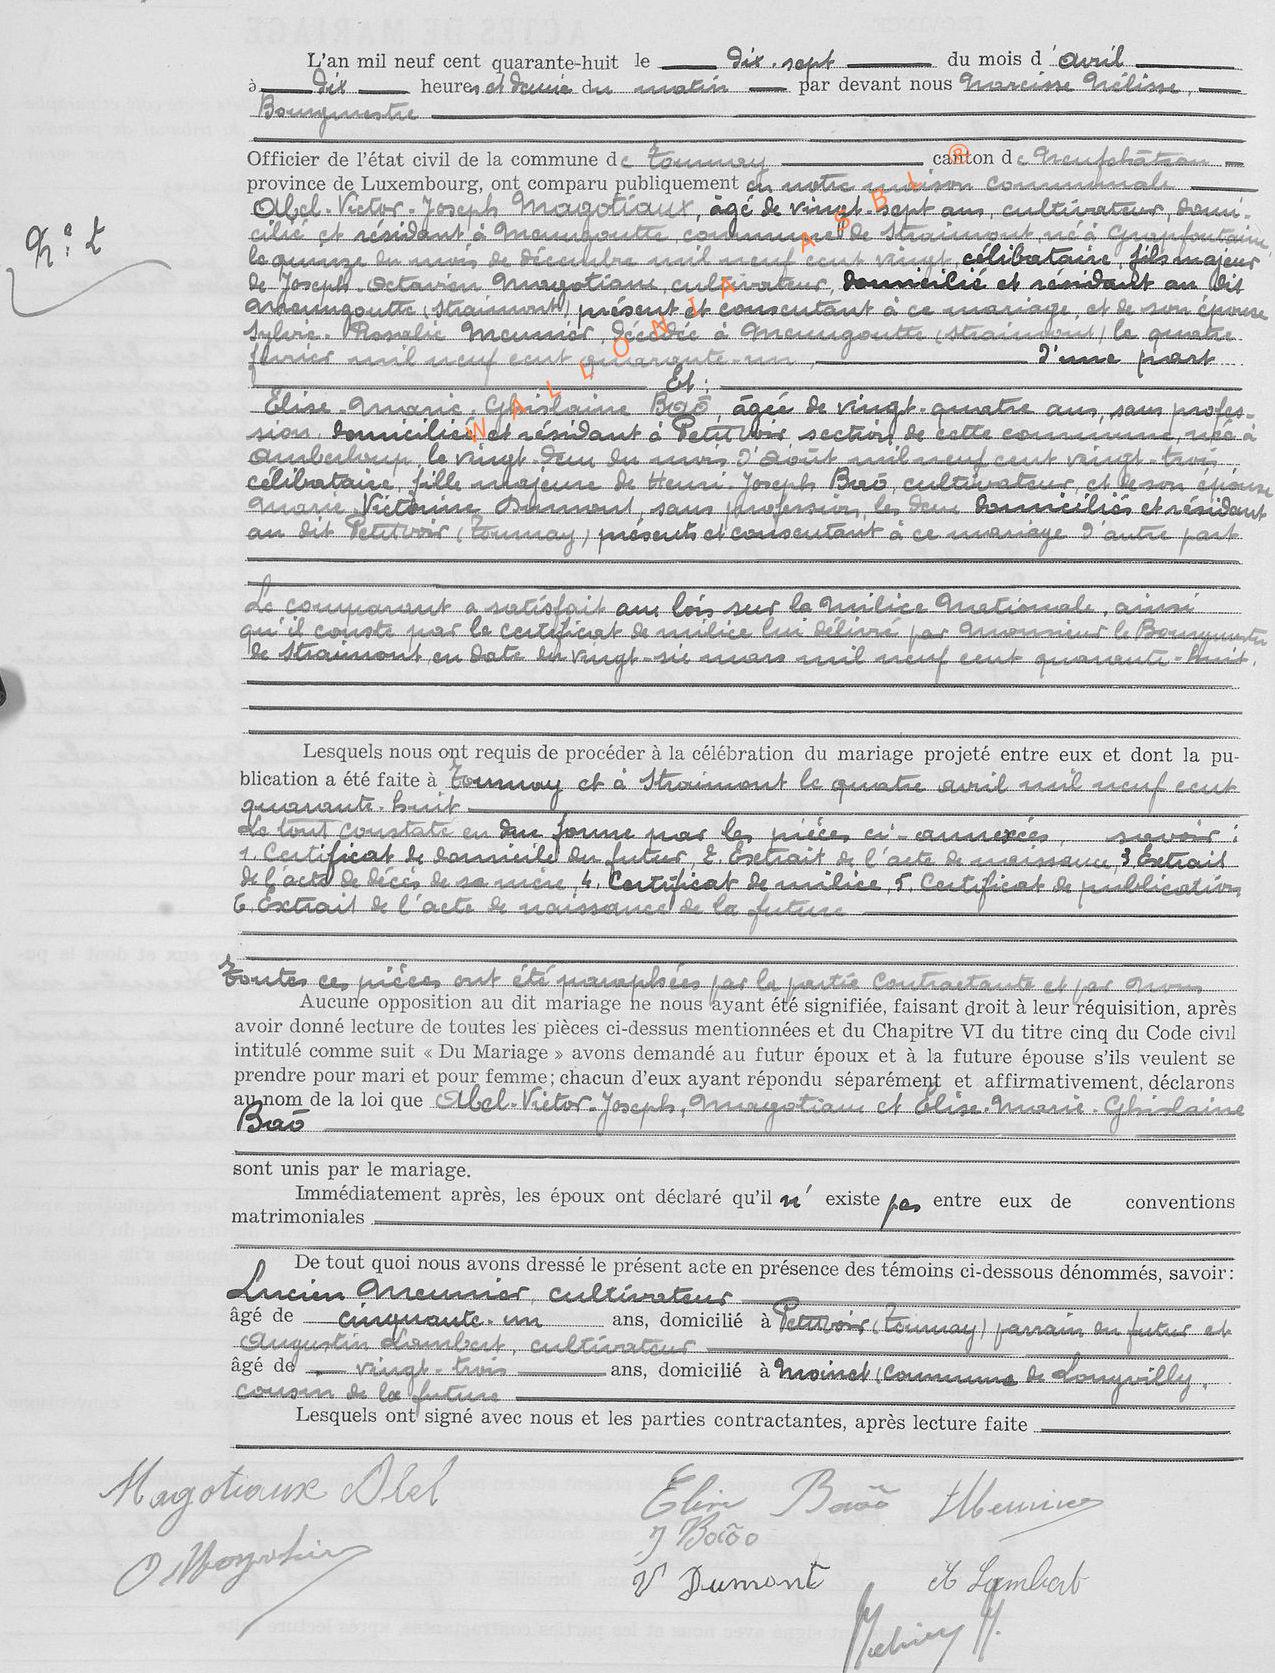 L'an mil neuf cent quarante-huit le dix-sept du mois d'avril
à dix heures et demie du matin par devant nous Narcisse Nélisse,
Bourgmestre
Officier de l'état civil de la commune de Tournay canton de Neufchâteau
province de Luxembourg, ont comparu publiquement en notre maison communale
Abel-Victor-Joseph Magotiaux, âgé de vingt-sept ans, cultivateur, domi-
cilié et résidant à Menugoutte commune de Straimont, né à Grapfontaine,
le quinze du mois de décembre mil neuf cent vingt, célibataire, fils majeur
de Joseph-Octavien Magotiaux, cultivateur, domicilié et résidant au dit
Menugoutte (Straimont) présent et consentant à ce mariage, et de son épouse
Sylvie-Rosalie Meunier, décédée à Menugoutte (Straimont) le quatre
février mil neuf cent quarante-un, d'une part
Et :
Elise-Marie-Ghislaine Baõ, âgée de vingt-quatre ans, sans profes-
sion, domiciliée et résidant à Petitvoir, section de cette commune, née à
Amberloup, le vingt-deux du mois d'août mil neuf cent vingt-trois
célibataire, fille majeure de Henri-Joseph Baõ, cultivateur, et de son épouse
Marie-Victorine Dumont, sans profession, les deux domiciliés et résidant
au dit Petitvoir (Tournay) présents et consentant à ce mariage d'autre part
Le comparant a satisfait aux lois sur la Milice Nationale, ainsi
qu'il conste par le certificat de milice lui délivré par Monsieur le Bourgmestre
de Straimont, en date du vingt-six mars mil neuf cent quarante-huit.
Lesquels nous ont requis de procéder à la célébration du mariage projeté entre eux et dont la pu-
blication a été faite à Tournay et à Straimont le quatre avril mil neuf cent
quarante-huit
Le tout constaté en due forme par les pièces ci-annexées, savoir :
1. Certificat de domicile du futur, 2. Extrait de l'acte de naissance, 3 Extrait
de l'acte de décès de sa mère, 4. Certificat de milice, 5 Certificat de publication
6. Extrait de l'acte de naissance de la future
Toutes ces pièces ont été paraphées par la partie contractante et par nous
Aucune opposition au dit mariage ne nous ayant été signifiée, faisant droit à leur réquisition, après
avoir donné lecture de toutes les pièces ci-dessus mentionnées et du Chapitre VI du titre cinq du Code civil
intitulé comme suit « Du Mariage » avons demandé au futur époux et à la future épouse s'ils veulent se
prendre pour mari et pour femme; chacun d'eux ayant répondu séparément et affirmativement, déclarons
au nom de la loi que Abel-Victor-Joseph, Magotiaux et Elise-Marie-Ghislaine
Baõ
sont unis par le mariage.
Immédiatement après, les époux ont déclaré qu'il n'existe pas entre eux de conventions
matrimoniales
De tout quoi nous avons dressé le présent acte en présence des témoins ci-dessous dénommés, savoir:
Lucien Meunier, cultivateur
âgé de cinquante-un ans, domicilié à Petitvoir (Tournay) parrain du futur et
Augustin Lambert, cultivateur
âgé de vingt-trois ans, domicilié à Moinet (commune de Longvilly,
cousin de la future
Lesquels ont signé avec nous et les parties contractantes, après lecture faite
N° 2
WALLONIA ASBL ®
Magotiaux Abel
Elise Baõ
LMeunier
J Baõ
O Magotiaux
V Dumont
A Lambert